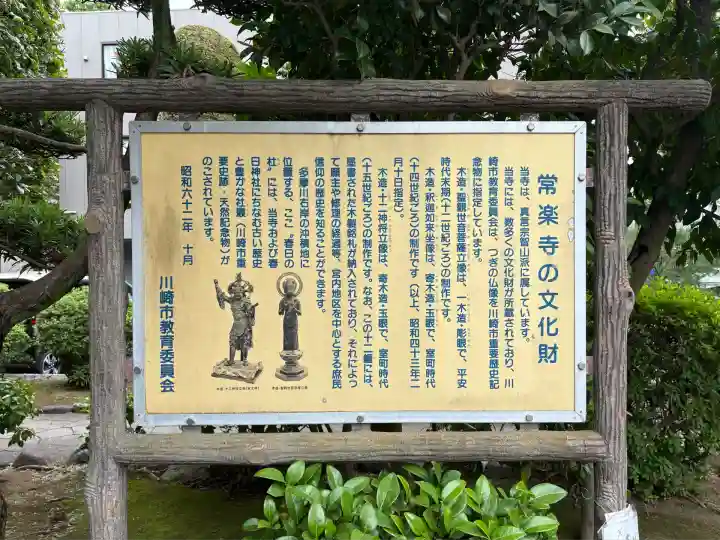 常楽寺の文化財
当寺は、真言宗智山派に属しています。
当寺には、数多くの文化財が所蔵されており、川
崎市教育委員会は、つぎの仏像を川崎市重要歴史記
念物に指定しています。
木造・聖観世音菩薩立像は、一木造・彫眼で、平安
時代末期(十二世紀ごろ)の制作です。
木造・釈迦如来坐像は、寄木造・玉眼で、室町時代
(十四世紀ごろ)の制作です(以上、昭和四十三年二
月十日指定)。
木造・十二神将立像は、寄木造・玉眼で、室町時代
(十五世紀ごろ)の制作です。なお、この十二軀には、
墨書された木製銘札が納入されており、それによっ
て願主や修理の経過等、宮内地区を中心とする庶民
信仰の歴史を知ることができます。
多摩川右岸の沖積地に
位置する、ここ"春日の
杜"には、当寺および春
日神社にちなむ古い歴史
と豊かな社叢(川崎市重
要史跡・天然記念物)が
のこされています。
昭和六十二年 十月
川崎市教育委員会